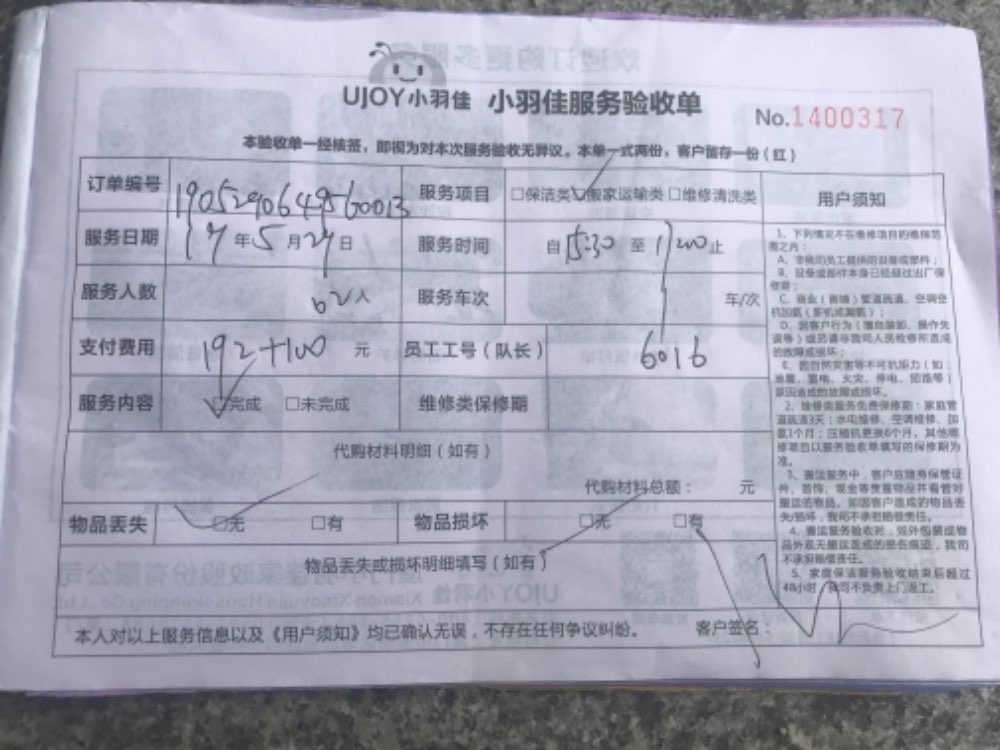 UJOY小羽佳 小羽佳服务验收单
No.1400317
本验收单一经核签，即视为对本次服务验收无异议。本单一式两份，客户留存一份（红）
订单编号 服务项目 □保洁类 □搬家运输类 □维修清洗类 用户须知
服务日期 年5月 日 服务时间 自15:30 至 止
服务人数 02人 服务车次 车/次
支付费用 192+100 元 员工工号（队长） 6016
服务内容 □完成 □未完成 维修类保修期
代购材料明细（如有）
代购材料总额： 元
物品丢失 □无 □有 物品损坏 □无 □有
物品丢失或损坏明细填写（如有）
本人对以上服务信息以及《用户须知》均已确认无误，不存在任何争议纠纷。 客户签名：
1、下列情况不在维修项目的维保范
围之内：
A、非我司员工提供的设备或部件；
B、设备或部件本身已经超过出厂保
修期；
C、商业（商铺）管道疏通、空调空
机加氨（新机或漏氨）；
E、因自然灾害等不可抗拒力（如：
地震、雷电、火灾、停电、短路等）
原因造成的故障或损坏。
2、维修类服务免费保修期：家庭管
道疏通3天；水电维修、空调维修、加
氨1个月；压缩机更换6个月。其他维
修项目以服务验收单填写的保修期为
准。
3、搬运服务中，客户应随身保管证
件、首饰、现金等贵重物品并看管好
搬运的物品。如因客户造成的物品丢
失/损坏，我司不承担赔偿责任。
4、搬运服务验收时，如外包装或物
品外观无搬运造成的损伤痕迹，我司
不承担赔偿责任。
5、家庭保洁服务验收结束后超过
48小时，我司不负责上门返工。